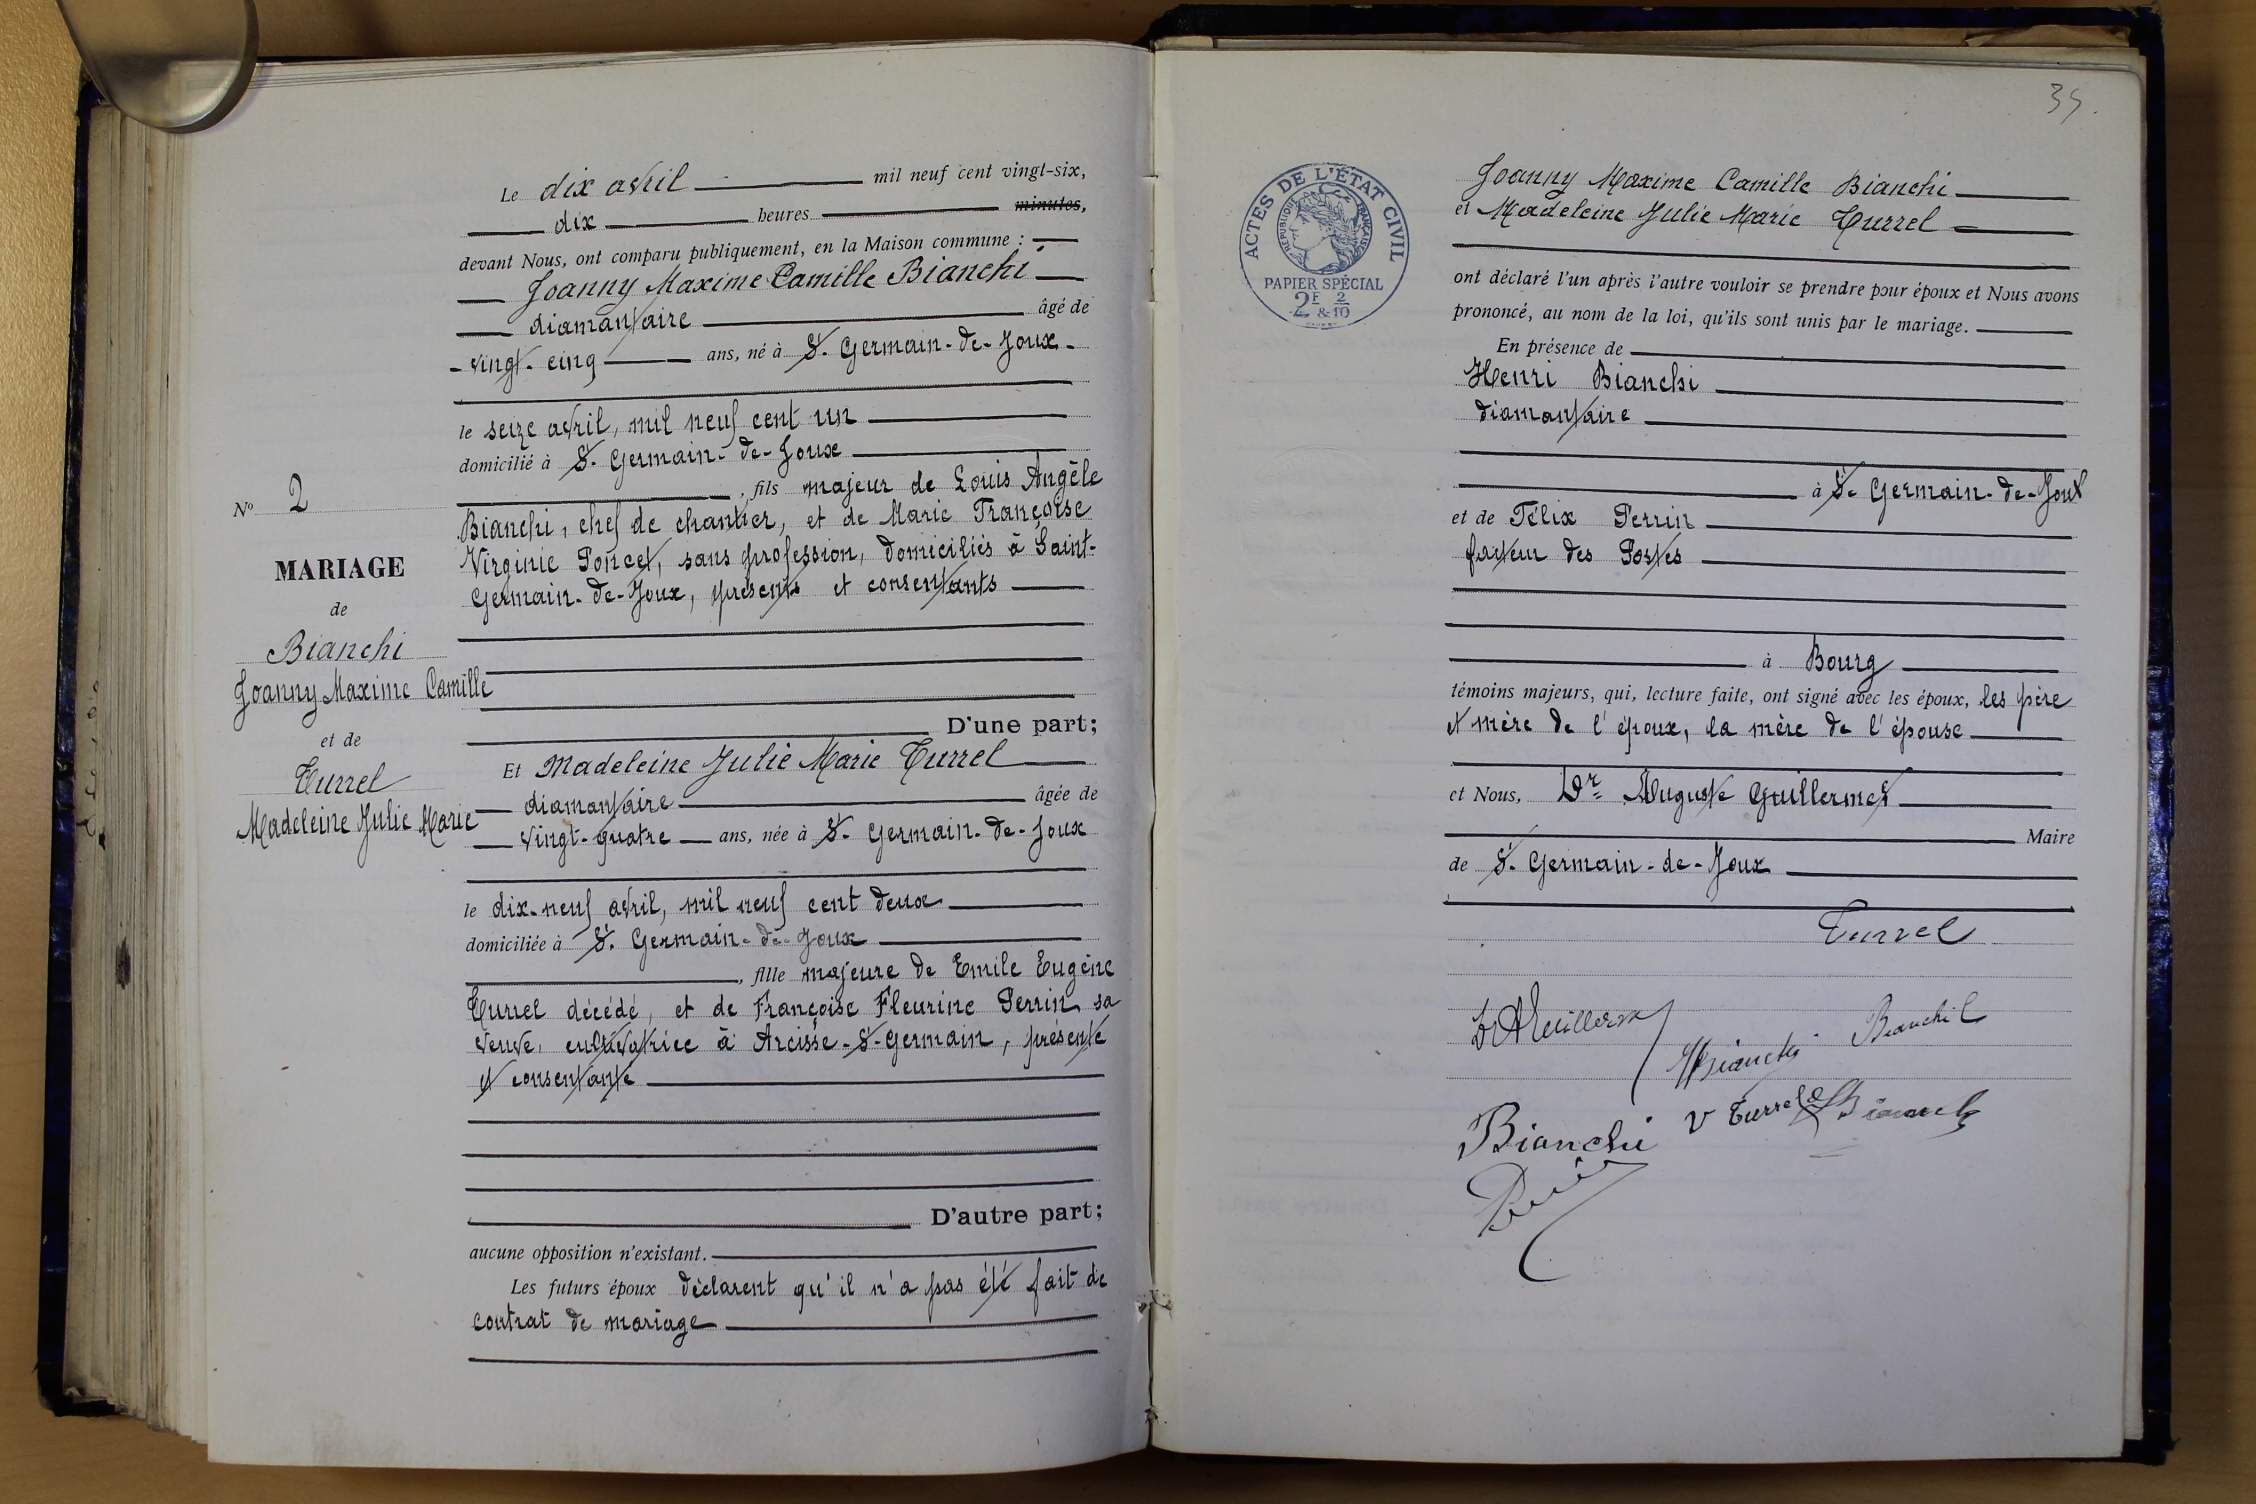 Le dix avril mil neuf cent vingt-six,
dix heures minutes,
devant Nous, ont comparu publiquement, en la Maison commune :
Joanny Maxime Camille Bianchi
diamantaire âgé de
vingt-cinq ans, né à St-Germain-de-Joux
le seize avril, mil neuf cent un
domicilié à St-Germain-de-Joux
, fils majeur de Louis Angèle
Bianchi, chef de chantier, et de Marie Françoise
Virginie Poncet, sans profession, domiciliés à Saint-
Germain-de-Joux, présents et consentants
D'une part;
Et Madeleine Julie Marie Turrel
diamantaire âgée de
vingt-quatre ans, née à St-Germain-de-Joux
le dix-neuf avril, mil neuf cent deux
domiciliée à St-Germain-de-Joux
, fille majeure de Emile Eugène
Turrel décédé, et de Françoise Fleurine Perrin sa
veuve, cultivatrice à Arcisse-St-Germain, présente
et consentante
D'autre part;
aucune opposition n'existant.
Les futurs époux déclarent qu'il n'a pas été fait de
contrat de mariage
No 2
MARIAGE
de
Bianchi
Joanny Maxime Camille
et de
Turrel
Madeleine Julie Marie
35.
ACTES DE L'ÉTAT CIVIL
RÉPUBLIQUE FRANÇAISE
PAPIER SPÉCIAL
2F & 2/10
Joanny Maxime Camille Bianchi
et Madeleine Julie Marie Turrel
ont déclaré l'un après l'autre vouloir se prendre pour époux et Nous avons
prononcé, au nom de la loi, qu'ils sont unis par le mariage.
En présence de
Henri Bianchi
diamantaire
à St-Germain-de-Joux
et de Félix Perrin
facteur des Postes
à Bourg
témoins majeurs, qui, lecture faite, ont signé avec les époux, les père
et mère de l'époux, la mère de l'épouse
et Nous, Dr Auguste Guillermet
Maire
de St-Germain-de-Joux
Turrel
Bianchi L
HBianchi
Bianchi
V Turrel